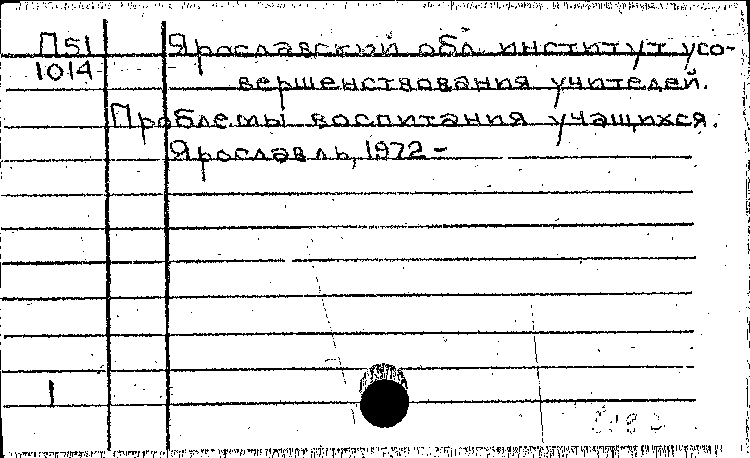 П51 Ярославский обл. институт усо-
1014 вершенствования учителей.
Проблемы воспитания учащихся.
Ярославль, 1972 -
1